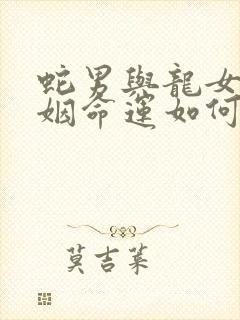 蛇男與龍女
姻命運如何
莫吉萊